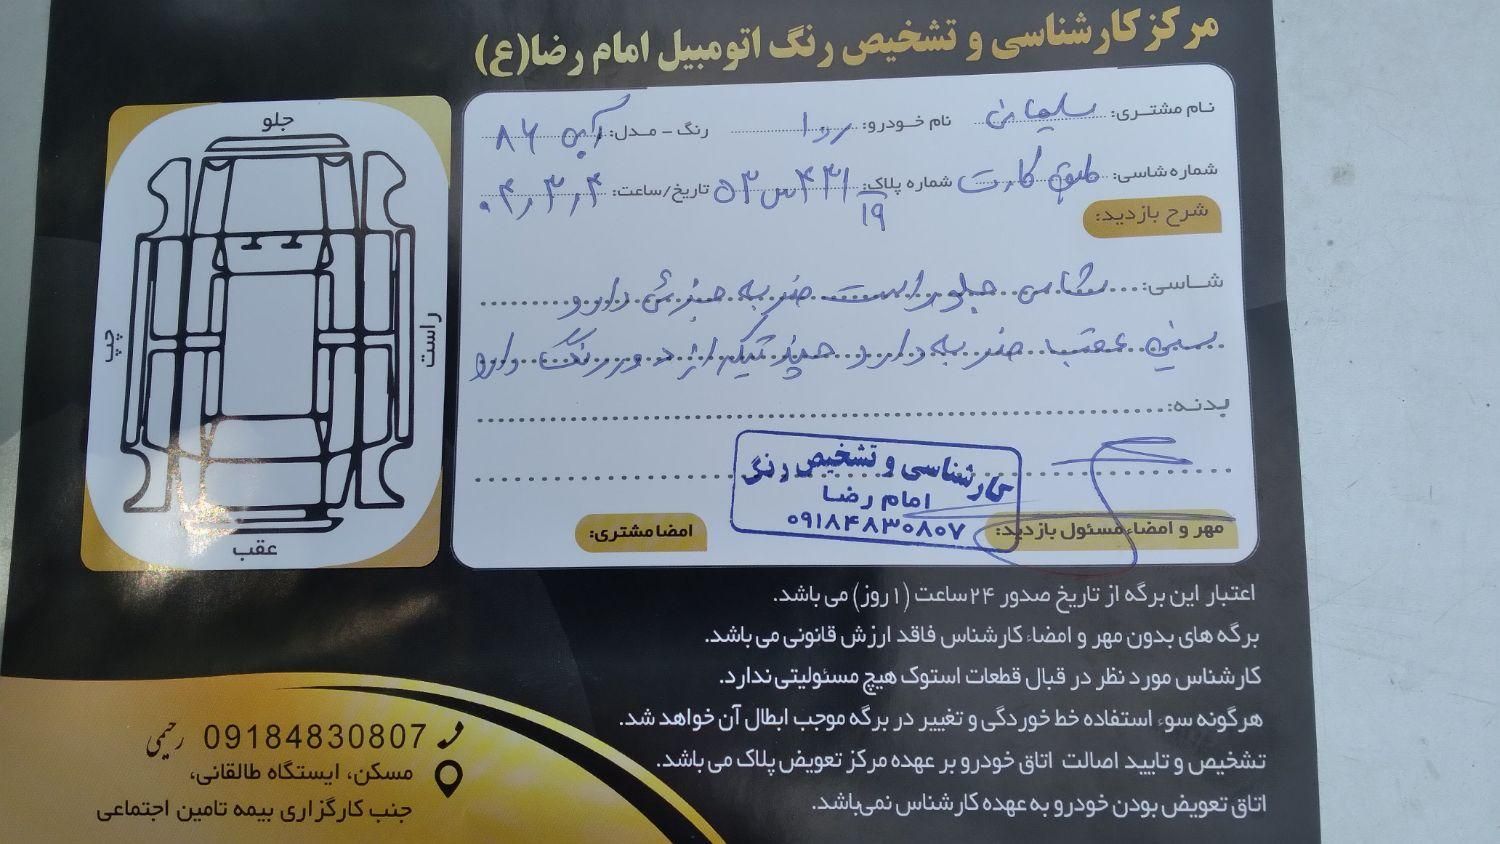 مرکز کارشناسی و تشخیص رنگ اتومبیل امام رضا(ع)
نام مشتری: سلیمانی نام خودرو: روا رنگ - مدل: آبی ۸۶
شماره شاسی: طبق کارت شماره پلاک: ۵۳ س ۴۳۱ ۱۹ تاریخ/ساعت: ۰۴,۳,۴
شرح بازدید:
شاسی: شاسی جلو راست ضربه جزئی دارد
سینی عقب ضربه دارد چند تیکه از دور رنگ دارد
بدنه:
کارشناسی و تشخیص رنگ
امام رضا
۰۹۱۸۴۸۳۰۸۰۷
مهر و امضاء مسئول بازدید: امضا مشتری:
جلو
چپ
راست
عقب
اعتبار این برگه از تاریخ صدور ۲۴ ساعت (۱ روز) می باشد.
برگه های بدون مهر و امضاء کارشناس فاقد ارزش قانونی می باشد.
کارشناس مورد نظر در قبال قطعات استوک هیچ مسئولیتی ندارد.
هرگونه سوء استفاده خط خوردگی و تغییر در برگه موجب ابطال آن خواهد شد.
تشخیص و تایید اصالت اتاق خودرو بر عهده مرکز تعویض پلاک می باشد.
اتاق تعویض بودن خودرو به عهده کارشناس نمی‌باشد.
09184830807 رحیمی
مسکن، ایستگاه طالقانی،
جنب کارگزاری بیمه تامین اجتماعی